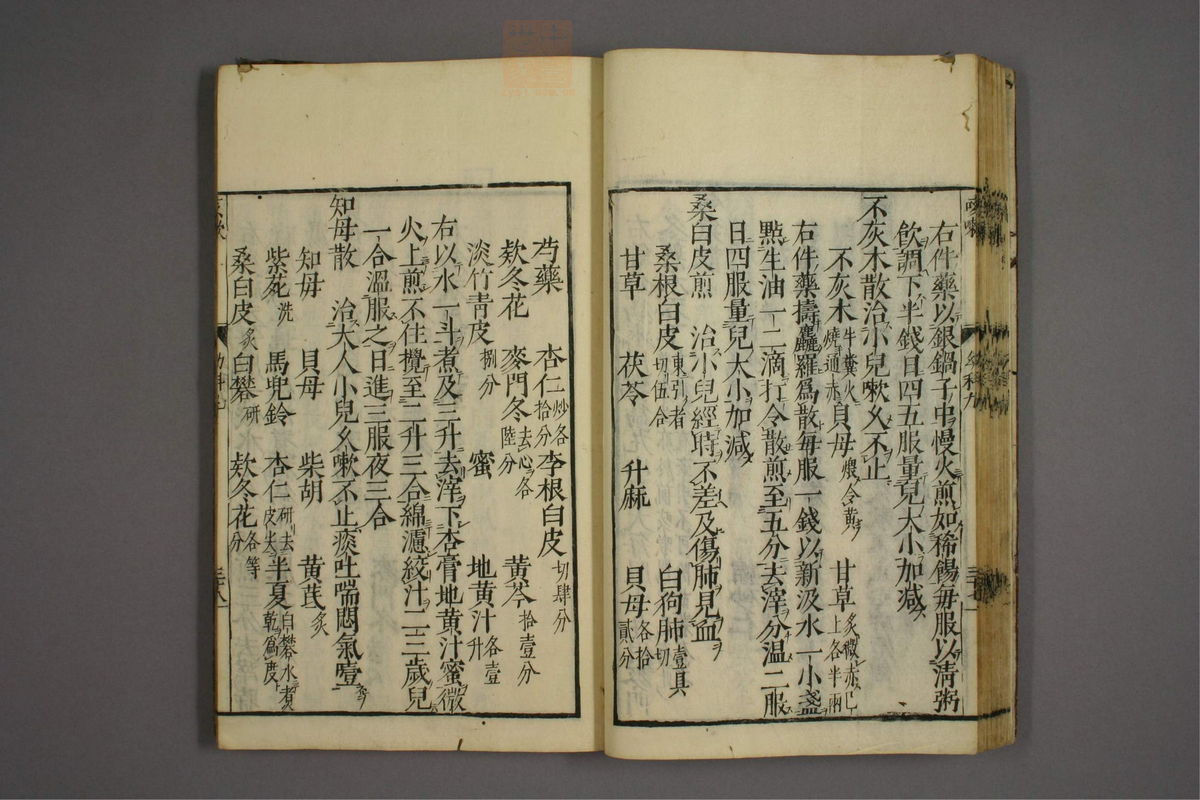 右件藥以銀鍋子中慢火煎如稀餳毎服以清粥
飲調下半錢日四五服量兒大小加減
不灰木散治小兒嗽久不止
不灰木牛糞火燒通赤貝母煨令黃甘草炙微赤已上各半兩
右件藥擣麤羅爲散毎服一錢以新汲水一小盞
點生油一二滴打令散煎至五分去滓分温二服
日四服量兒大小加減
桑白皮煎 治小兒經時不差及傷肺見血
桑根白皮東引者切伍合 白狗肺壹具切
甘草 茯苓 升麻 貝母各拾貳分
芍藥 杏仁炒各拾分李根白皮切肆分
欵冬花 麥門冬去心各陸分 黄芩拾壹分
淡竹青皮捌分 蜜 地黄汁各壹升
右以水一斗煮及三升去滓下杏膏地黄汁蜜微
火上煎不住攪至二升三合綿濾絞汁二三歳兒
一合溫服之日進三服夜三合
知母散 治大人小兒久嗽不止痰吐喘悶氣噎
知母 貝母 柴胡 黄茋炙
紫菀洗 馬兜鈴 杏仁研去皮尖半夏白礬水煮乾爲度
桑白皮炙白礬研 欵冬花各等分